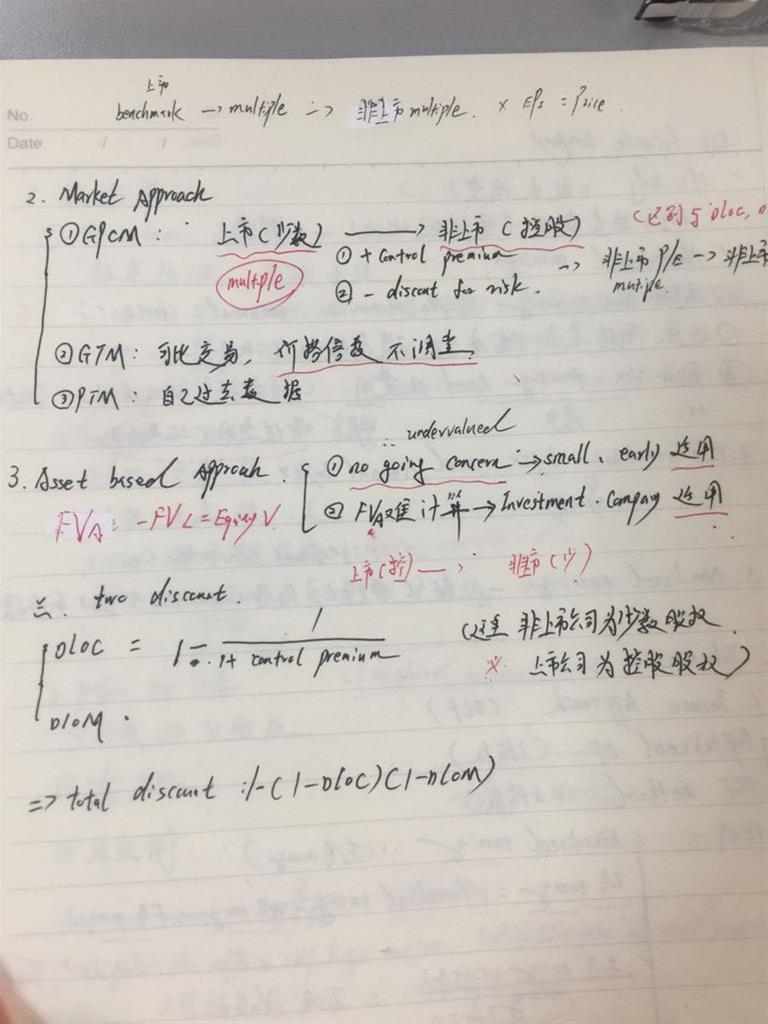 上市
No. benchmark → multiple => 非上市 multiple. × EPS = Price.
Date. / /
2. Market Approach
① GPCM: 上市(少数) → 非上市(控股) (区别与DLOC,
multiple ① + control premium => 非上市 P/E → 非上市
② - discount for risk. multiple.
② GTM: 可比交易, 价格倍数 不调整.
③ PTM: 自己过去数据
∴ undervalued
3. Asset based Approach. ① no going concern → small, early 适用
FVA - FVL = Equity V. ② FVA难计算 → Investment. Company 适用
上市(控) → 非上市(少)
三. two discount.
DLOC = 1 - 1 / 1 + control premium (这里 非上市公司为少数股权.
× 上市公司为控股股权)
DLOM.
=> total discount : 1-(1-DLOC)(1-DLOM)